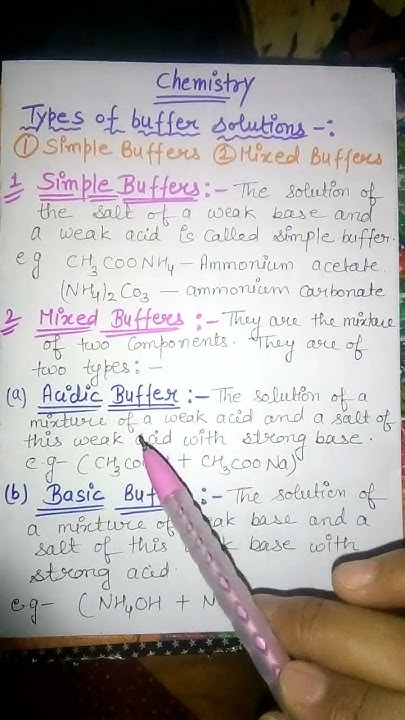 Chemistry
Types of buffer solutions -:
① Simple Buffers ② Mixed Buffers
1 Simple Buffers :- The solution of
the salt of a weak base and
a weak acid is called simple buffer.
eg CH3COONH4 - Ammonium acetate.
(NH4)2CO3 - ammonium carbonate
2 Mixed Buffers :- They are the mixture
of two components. They are of
two types :-
(a) Acidic Buffer :- The solution of a
mixture of a weak acid and a salt of
this weak acid with strong base.
e.g- (CH3COO + CH3COONa)
(b) Basic Buf :- The solution of
a mixture of weak base and a
salt of this base with
strong acid.
e.g- (NH4OH + N